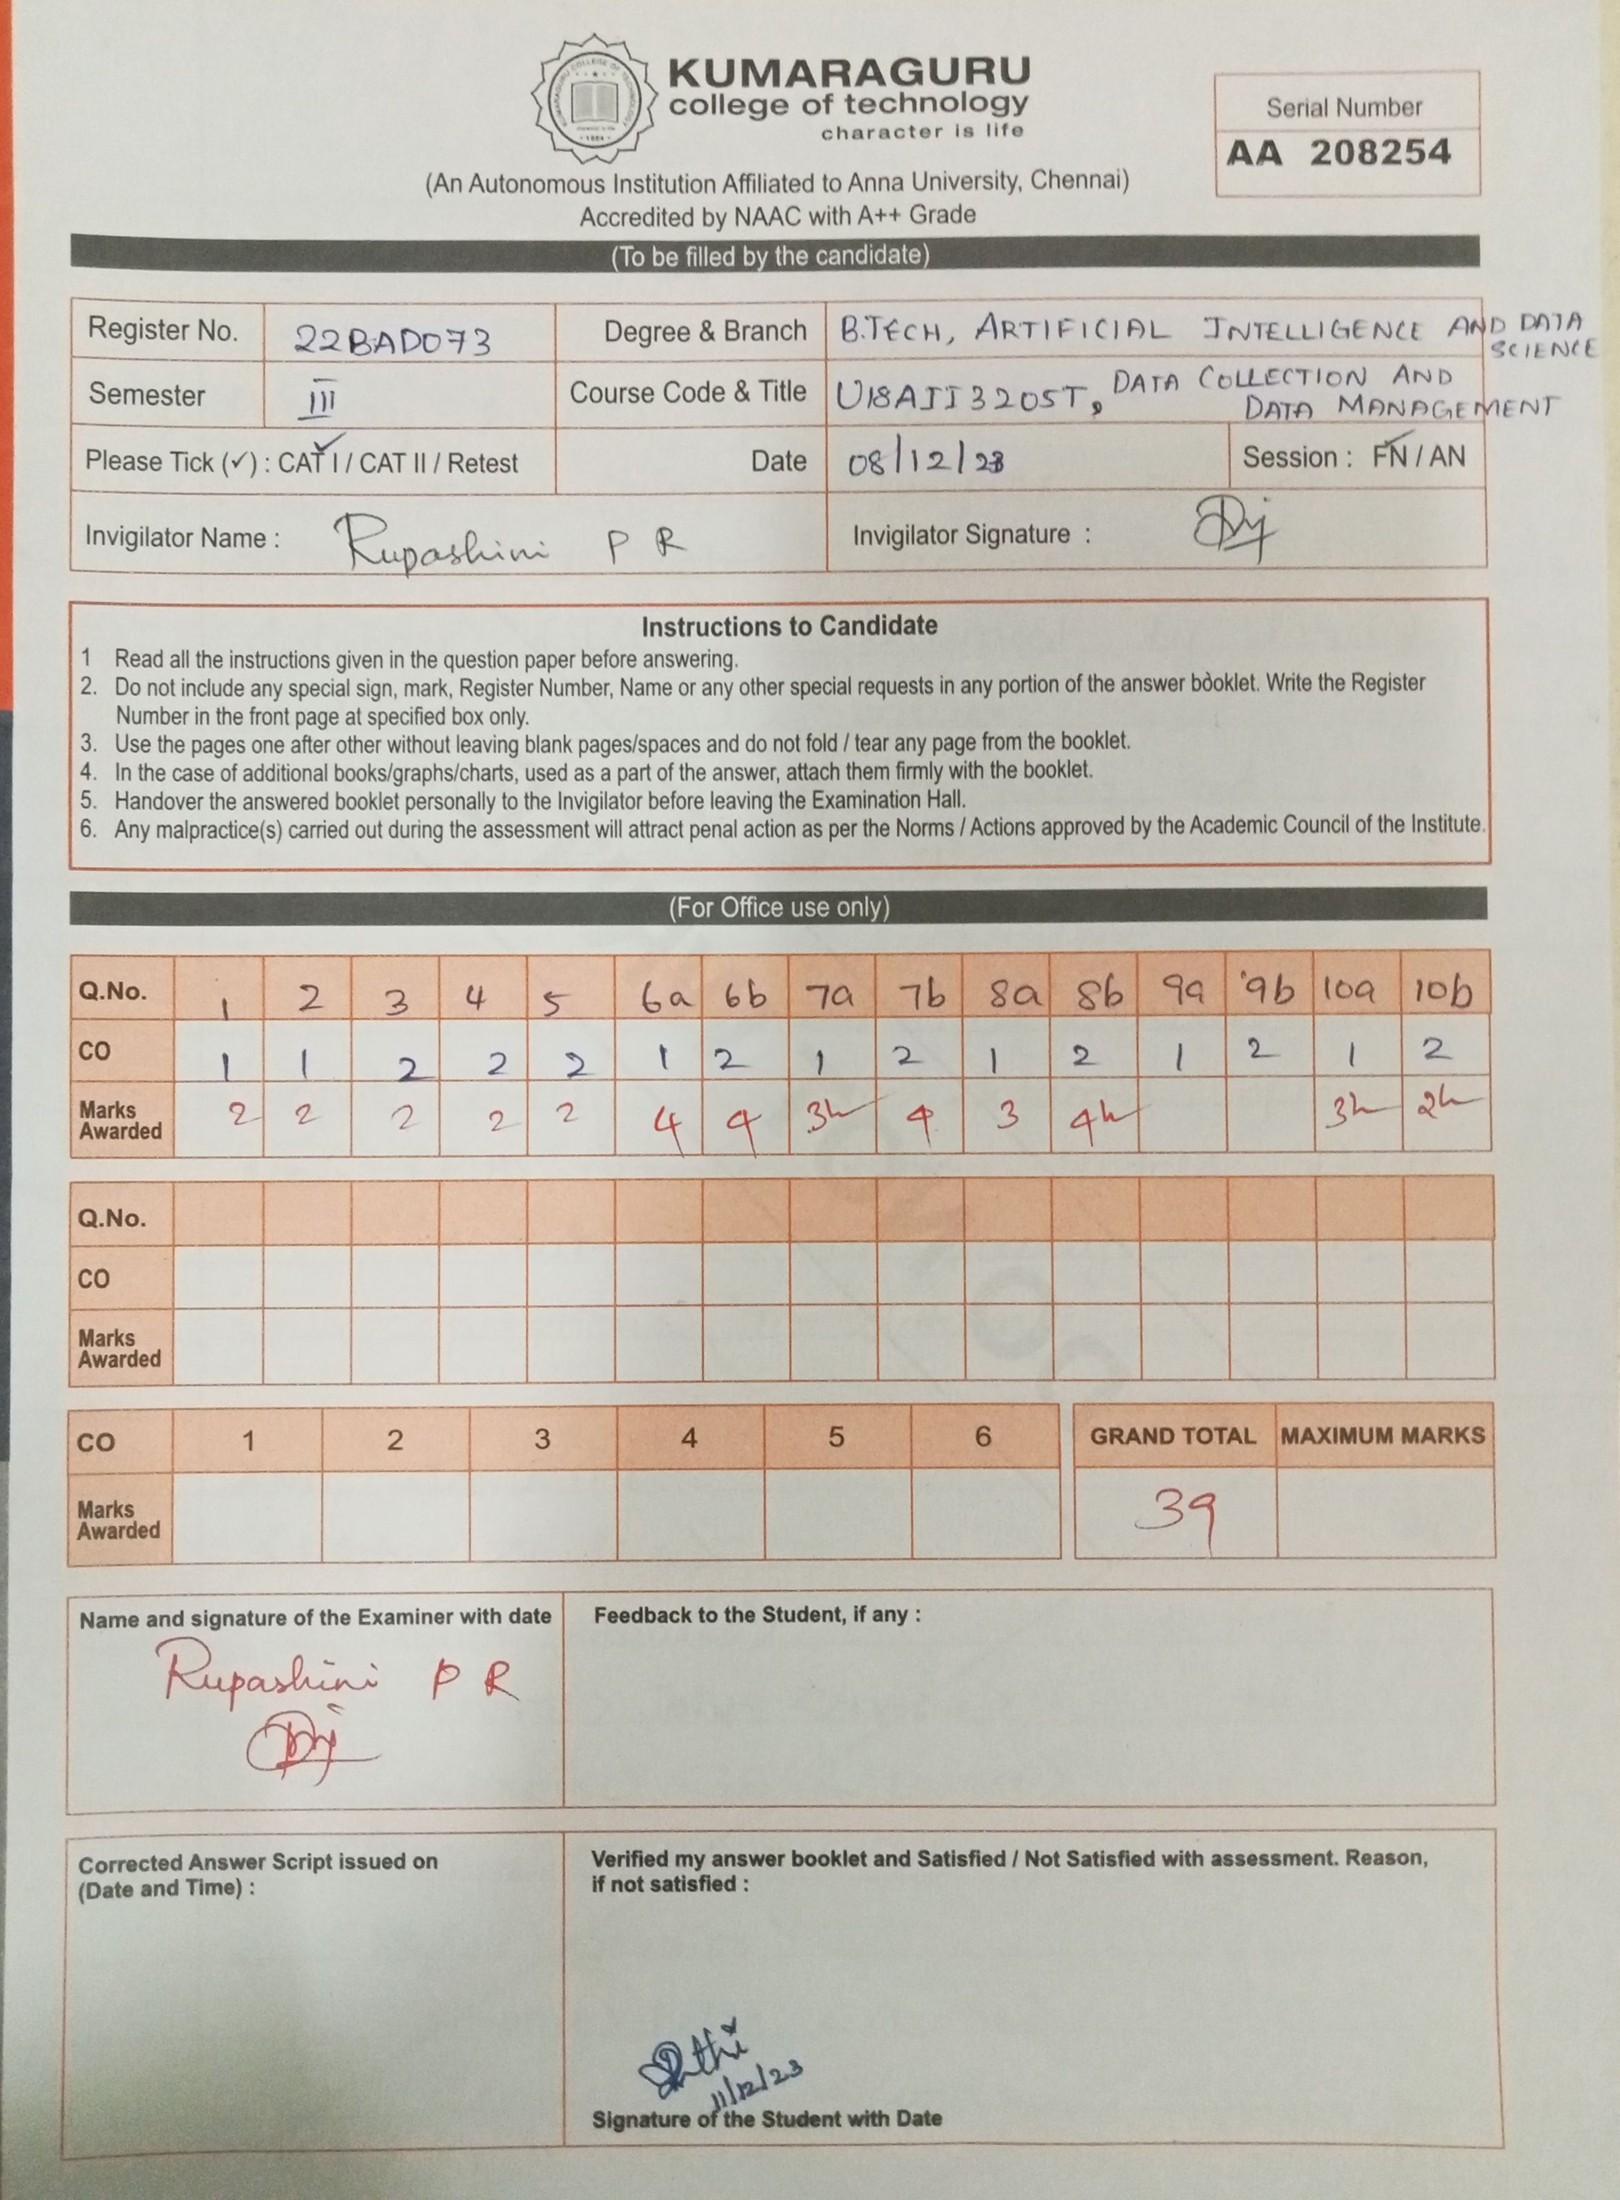 KUMARAGURU
college of technology
character is life
Serial Number
AA 208254
(An Autonomous Institution Affiliated to Anna University, Chennai)
Accredited by NAAC with A++ Grade
(To be filled by the candidate)
Register No. 22BAD073 Degree & Branch B.TECH, ARTIFICIAL INTELLIGENCE AND DATA SCIENCE
Semester III Course Code & Title U18AII3205T, DATA COLLECTION AND
DATA MANAGEMENT
Please Tick (✓) : CAT I / CAT II / Retest Date 08/12/23 Session : FN / AN
Invigilator Name : Rupashini P R Invigilator Signature :
Instructions to Candidate
1 Read all the instructions given in the question paper before answering.
2. Do not include any special sign, mark, Register Number, Name or any other special requests in any portion of the answer booklet. Write the Register
Number in the front page at specified box only.
3. Use the pages one after other without leaving blank pages/spaces and do not fold / tear any page from the booklet.
4. In the case of additional books/graphs/charts, used as a part of the answer, attach them firmly with the booklet.
5. Handover the answered booklet personally to the Invigilator before leaving the Examination Hall.
6. Any malpractice(s) carried out during the assessment will attract penal action as per the Norms / Actions approved by the Academic Council of the Institute.
(For Office use only)
Q.No. 1 2 3 4 5 6a 6b 7a 7b 8a 8b 9a 9b 10a 10b
CO 1 1 2 2 2 1 2 1 2 1 2 1 2 1 2
Marks Awarded 2 2 2 2 2 4 4 3½ 4 3 4½ 3½ 2½
Q.No.
CO
Marks
Awarded
CO 1 2 3 4 5 6 GRAND TOTAL MAXIMUM MARKS
Marks
Awarded
39
Name and signature of the Examiner with date
Rupashini P R
Feedback to the Student, if any :
Corrected Answer Script issued on
(Date and Time) :
Verified my answer booklet and Satisfied / Not Satisfied with assessment. Reason,
if not satisfied :
11/12/23
Signature of the Student with Date